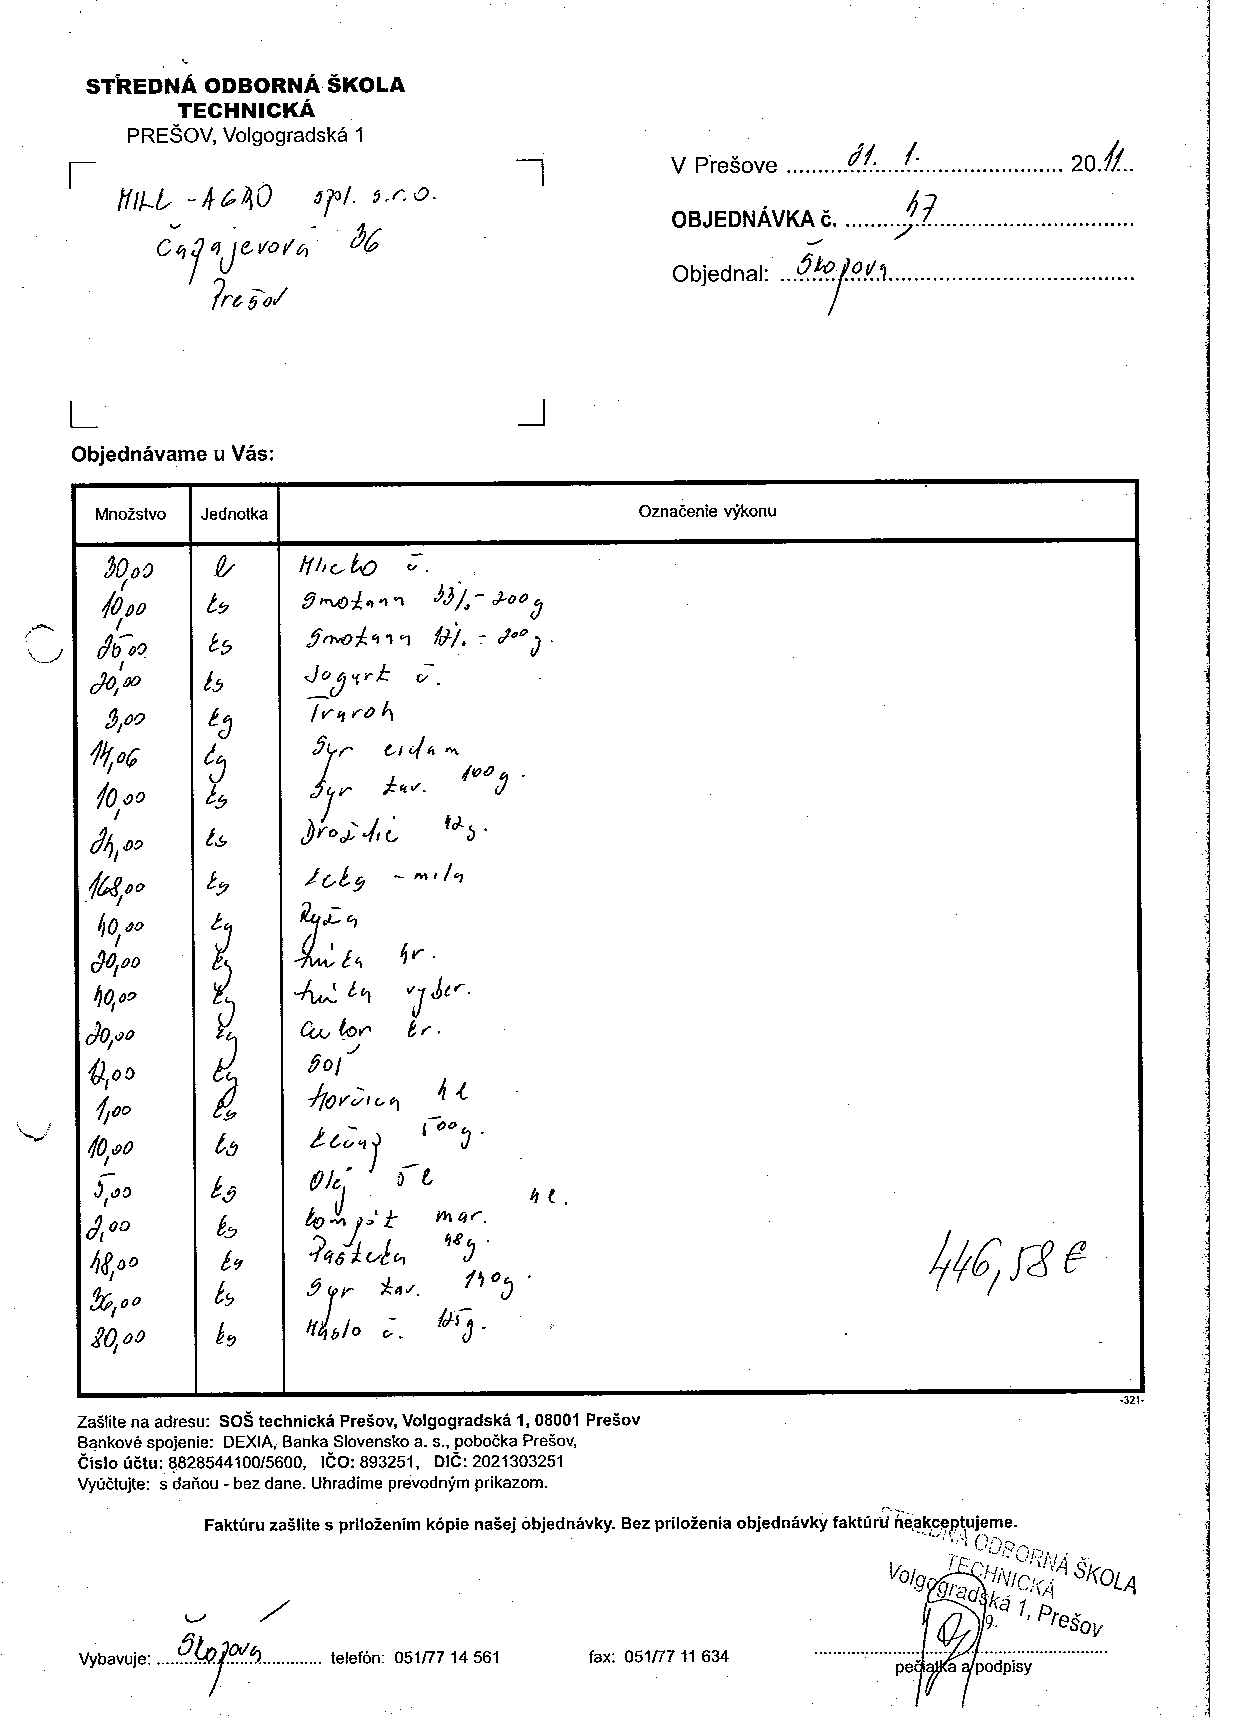 STREDNÁ ODBORNÁ ŠKOLA
TECHNICKÁ
PREŠOV, Volgogradská 1
V Prešove 31. 1. 2011
MILL-AGRO spl. s.r.o.
Čapajevova 36
Prešov
OBJEDNÁVKA č. 47
Objednal: Škopová
Objednávame u Vás:
Množstvo Jednotka Označenie výkonu
30,00 l Mlieko č.
10,00 ks Smotana 33%- 200g
25,00 ks Smotana 12%- 200g.
20,00 ks Jogurt č.
3,00 kg Tvaroh
14,06 kg Syr eidam
10,00 ks Syr tav. 100g.
24,00 ks Droždie 42g.
168,00 ks Keky - mila
40,00 kg Ryža
20,00 kg Múka hr.
40,00 kg Múka výber.
20,00 kg Cukor kr.
12,00 kg Soľ
1,00 ks Horčica 4 l
10,00 ks Lečo 500g.
5,00 ks Olej 5 l
2,00 ks Kompót mar. 4 l.
48,00 ks Paštéka 48g.
36,00 ks Syr tav. 140g.
80,00 ks Maslo č. 125g.
446,58 €
-321-
Zašlite na adresu: SOŠ technická Prešov, Volgogradská 1, 08001 Prešov
Bankové spojenie: DEXIA, Banka Slovensko a. s., pobočka Prešov,
Číslo účtu: 8828544100/5600, IČO: 893251, DIČ: 2021303251
Vyúčtujte: s daňou - bez dane. Uhradíme prevodným príkazom.
Faktúru zašlite s priložením kópie našej objednávky. Bez priloženia objednávky faktúru neakceptujeme.
ODBORNÁ ŠKOLA
TECHNICKÁ
Volgogradská 1, Prešov
9.
Vybavuje: Škopová telefón: 051/77 14 561 fax: 051/77 11 634
pečiatka a podpisy